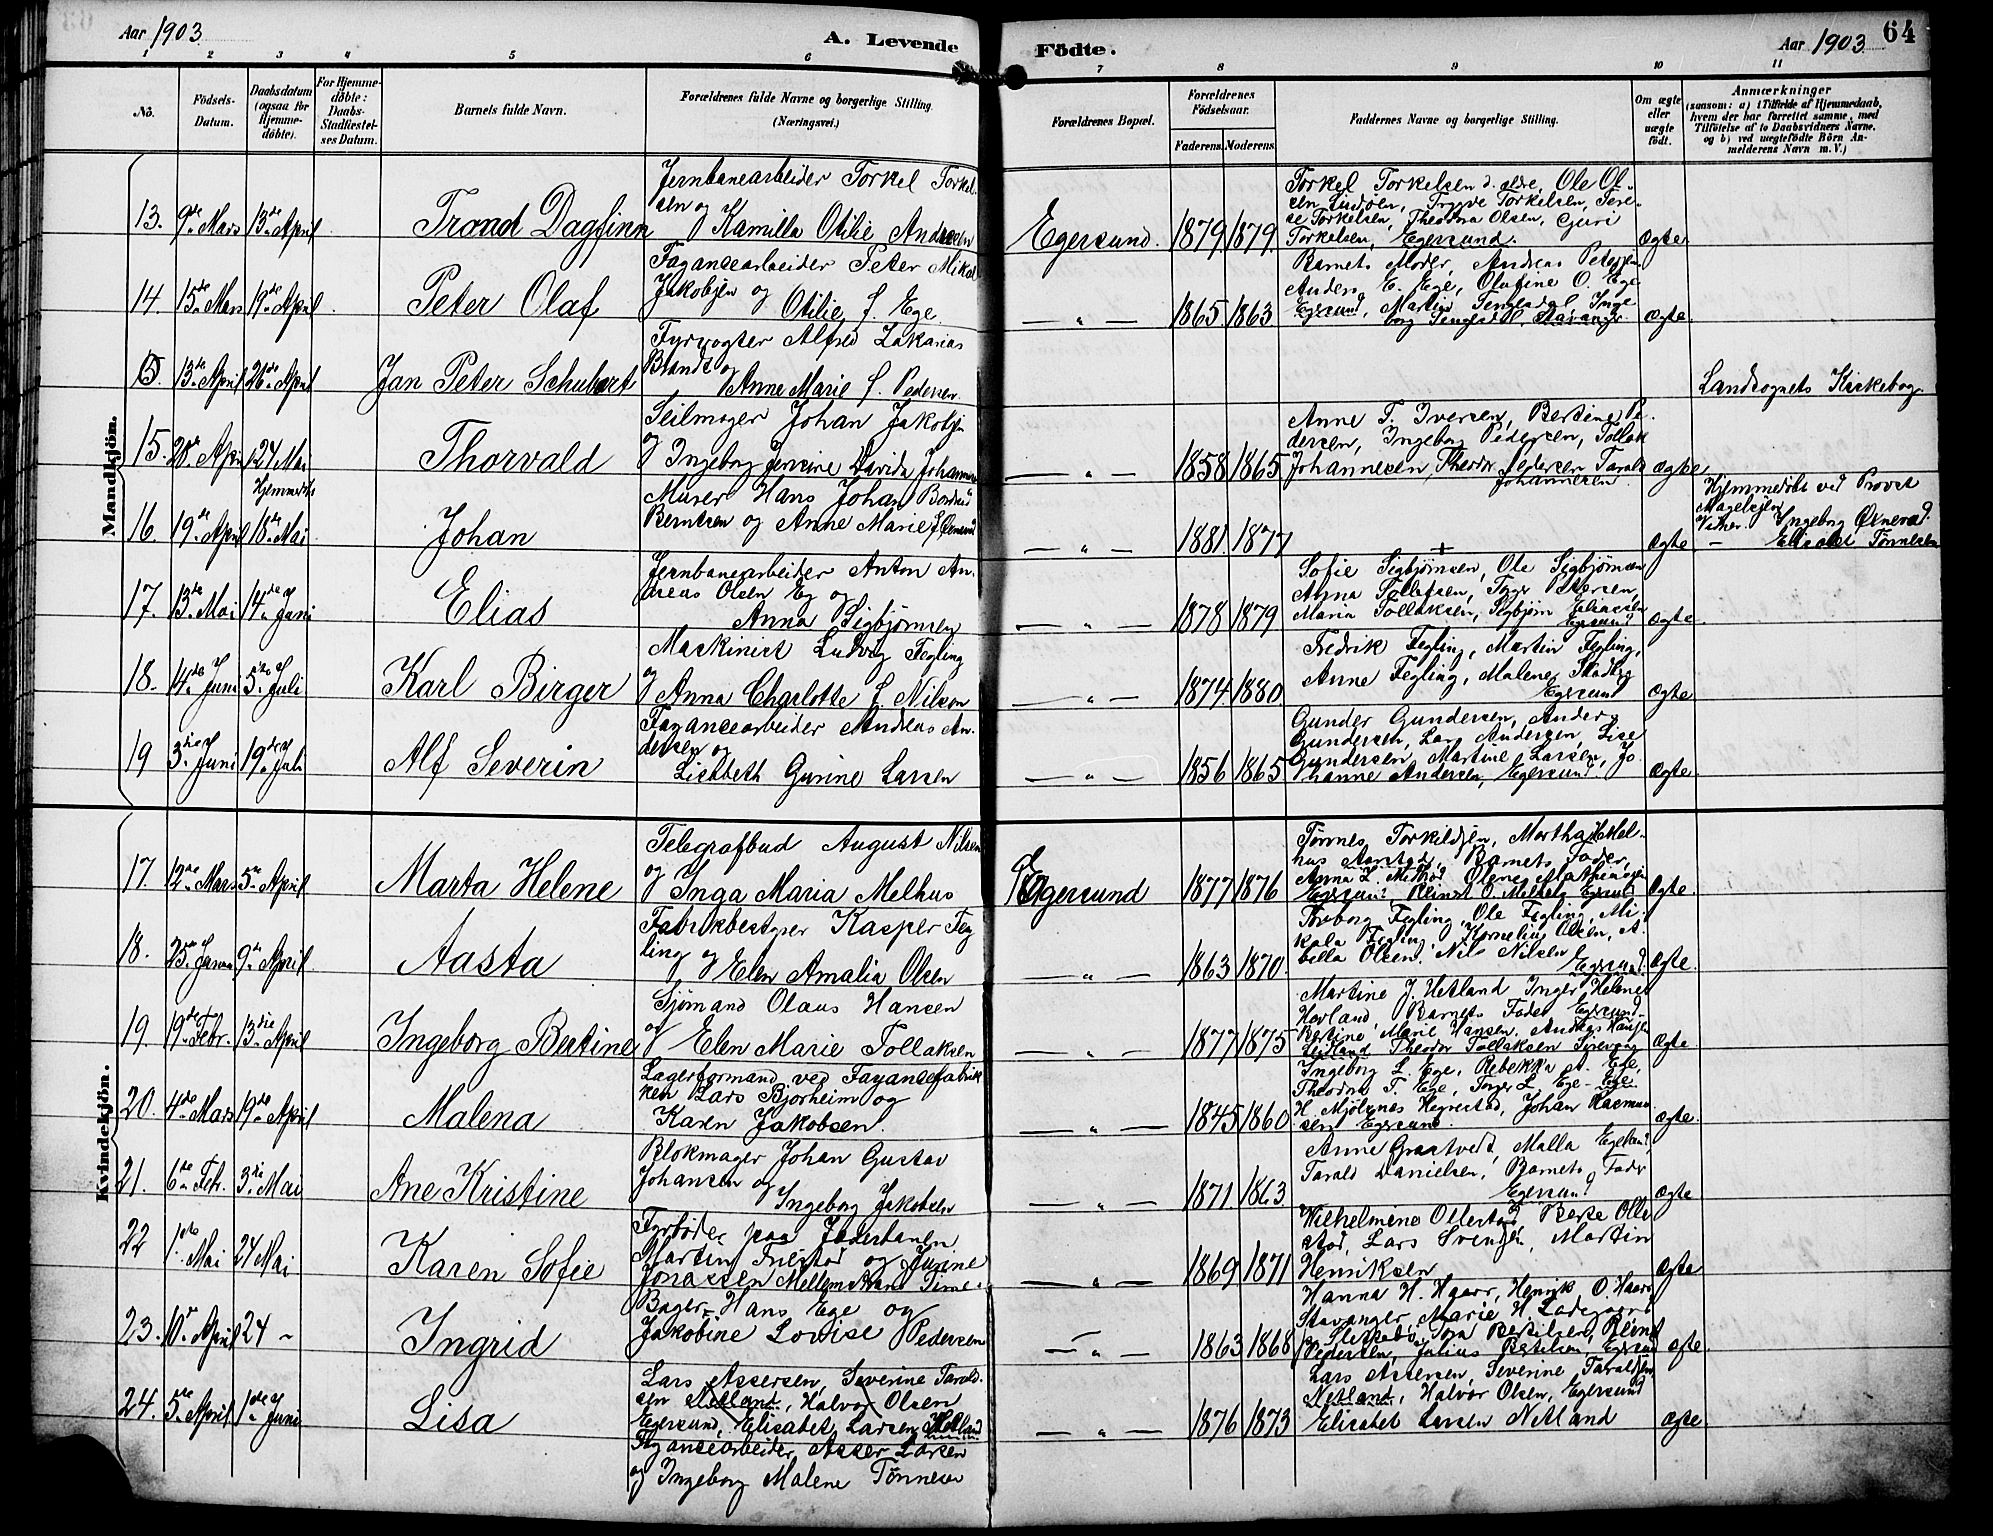 Aar 1903.
A. Levende
Födte.
Aar 1903
64
1 2 3 4 5 6 7 8 9 10 11
No.
Födsels-Datum.
Daabsdatum (ogsaa for Hjemme-döbte).
For Hjemme-döbte: Daabs-Stadfæstel-ses Datum.
Barnets fulde Navn.
Forældrenes fulde Navne og borgerlige Stilling. (Næringsvei.)
Forældrenes Bopæl.
Forældrenes Födselsaar.
Faderens. Moderens.
Faddernes Navne og borgerlige Stilling.
Om ægte eller uægte födt.
Anmærkninger
(saasom: a) i Tilfælde af Hjemmedaab, hvem der har forrettet samme, med Tilföielse af to Daabsvidners Navne, og b) ved uægtefödte Börn An-melderens Navn m. V.)
Mandkjön.
13. 9de Mars 13de April
Trond Dagfinn
Jernbanearbeider Torkel Torkel-
sen og
Kamilla Otilie Andersen
Egersund. 1879. 1879.
Torkel Torkelsen d. ældre, Ole Ol-
sen Trygve Torkelsen, Tere-
se Torkelsen, Theodora Olsen, Guri
Torkelsen, Egersund.
Ægte
14. 15de Mars 19de April
Peter Olaf
Fayancearbeider Peter Mikal
Jakobsen og Otilie f. Ege
— " — 1865. 1863
Barnets Moder, Andreas Petersen
Anders E. Ege, Olufine O. Ege
Egersund, Martin Tengesdal Inge
borg Tengesdal, Stavanger.
Ægte.
13de April 26de April
Jan Peter Schubart
Fyrvogter Alfred Zakarias
Brandt og
Anne Marie f. Pedersen
Landsognets Kirkebog.
15. 28de April 24 Mai
Hjemmedøbt
Thorvald
Seilmager Johan Jakobsen
og Ingeborg Davida Johannesen
— " — 1858 1865
Anne T. Iversen, Bertine Pe-
dersen, Ingeborg Pedersen, Tollak
Johannesen, Theodor Pedersen Tarald
Johannesen.
Ægte
16. 19de April 18de Mai
Johan
Murer Hans Johan
Berntsen og Anne Marie f.
— " — 1881 1877
Ægte
Hjemmedøbt ved Provst
Magelssen
Vidner. Ingeborg
— Elisabet Tønnesen
17. 13de Mai 14de Juni
Elias
Jernbanearbeider Anton An-
dreas Olsen Eg og
Anna Sigbjørnsen
— " — 1878 1879
Sofie Sigbjørnsen, Ole Sigbjørnsen
Anna Tollefsen, Petersen,
Maria Tollaksen, Sigbjørn Eliassen
Egersund
Ægte
18. 4de Juni 5te Juli
Karl Birger
Maskinist Ludvig Fegling
og Anna Charlotte f. Nilson
— " — 1874. 1880
Fredrik Fegling, Martin Fegling,
Anne Fegling, Malene
Egersund
Ægte
19 3die Juni 19de Juli
Alf Severin
Fayancearbeider Andreas An-
dersen og
Lisebeth Gurine Larsen
— " — 1856 1865
Gunder Gundersen, Anders
Gundersen, Lars Andersen, Lise
Gundersen, Martine Larsen, Jo-
hanne Andersen, Egersund
Ægte.
Kvindekjön.
17. 12te Mars 5te April
Marta Helene
Telegrafbud August Nilsen
og Inga Maria Melhus
Egersund 1877 1876
Tønnes Torkildsen, Martha Mel-
hus Aarstad, Barnets Fader,
Anna L. Olene Mathiassen
Egersund O. Melhus Egersund
Ægte.
18. 25de Januar 9de April
Aasta
Fabrikbestyrer Kasper Feg-
ling og Elen Amalia Olsen
— " — 1863 1870.
Torborg Fegling, Ole Fegling, Mi-
kala Fegling, Kornelius Olsen, A-
bella Olsen. Nils Nilsen
Egersund
Ægte.
19. 19de Febr. 13die April
Ingeborg Bertine
Sjømand Olaus Hansen
og Elen Marie Tollaksen
— " — 1877 1875
Martine J. Hetland Inger Helene
Hovland, Barnets Fader Egersund
Bertine Marie Hansen, Andreas Hansen
Theodor Tollaksen Sirevaag
Ægte.
20. 4de Mars 19de April
Malena
Lagerformand ved Fayancefabrik-
ken Lars Bjorheim og
Karen Jakobsen.
— " — 1845 1860
Ingeborg L. Ege, Rebekka A. Ege,
Theodora T. Ege, Inger L. Ege - Ege
H. Mjølsnes Hegrestad, Johan Rasmus-
sen Egersund.
Ægte.
21. 6te Febr. 3die Mai
Ane Kristine
Blokmager Johan Gustav
Johansen og
Ingeborg Jakobsen
— " — 1871. 1863
Anne Graatvedt, Malla Egelund,
Tarald Danielsen, Barnets Fader
Egersund
Ægte
22 1ste Mai 24 Mai
Karen Sofie
Fyrbøder paa Jæderbanen
Martin og Jurine
Jonassen
— " — 1869 1871
Wilhelmine Ollestad, Berte Olle
stad, Lars Svendsen, Martin
Henriksen
Ægte
23. 10de April 24 -
Ingrid
Bager Hans Ege og
Jakobine Lovise Pedersen
— " — 1863 1868
Hanna H. Haarr, Henrik O. Haarr
Stavanger, Marie H. Ladegaard
Tora Bertilsen, Bernt
Pedersen, Julius Bertilsen, Egersund
Ægte.
24. 5te April 1ste Juni
Lisa
Lars Assersen, Severine Tarald-
sen Netland, Halvor Olsen
Egersund, Elisabet Larsen Netland
Fayancearbeider Asser Larsen
og Ingeborg Malene Tønnesen
— " — 1876 1873
Lars Assersen, Severine Taraldsen
Netland, Halvor Olsen, Egersund
Elisabet Larsen Netland
Ægte.